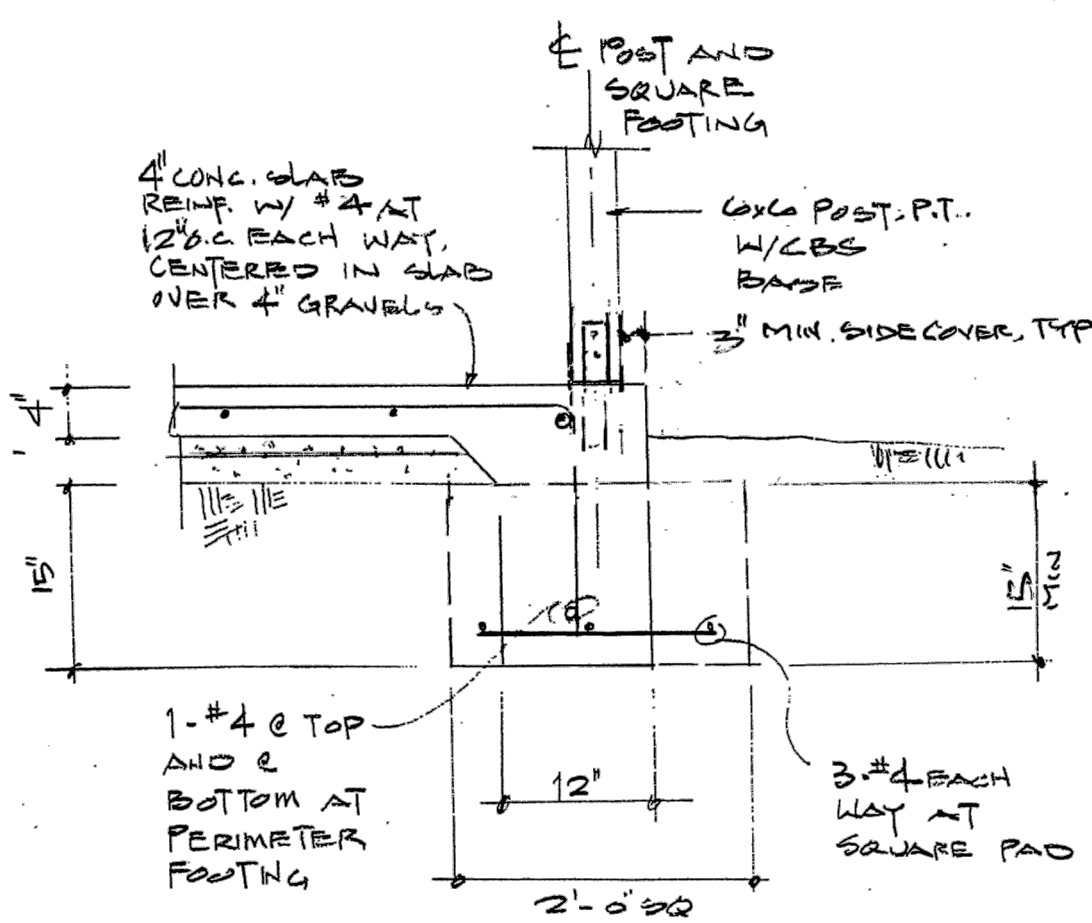 ℄ POST AND
SQUARE
FOOTING
4" CONC. SLAB
REINF. W/ #4 AT
12" O.C. EACH WAY,
CENTERED IN SLAB
OVER 4" GRAVELS
6x6 POST, P.T.
W/CBS
BASE
3" MIN. SIDE COVER, TYP
4"
15"
15"
MIN
1-#4 @ TOP
AND @
BOTTOM AT
PERIMETER
FOOTING
12"
3-#4 EACH
WAY AT
SQUARE PAD
2'-0" SQ